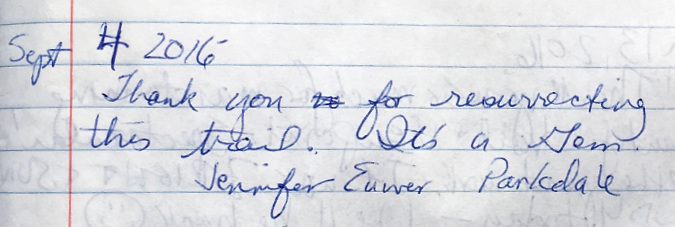 Sept 4 2016
Thank you for resurrecting
this trail. It's a Gem.
Jennifer Euwer Parkdale